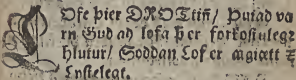 LOfe þier DROTtiñ / Þutad va
rn Gud ad lofa þ er forkosiulegr
hlutur / Soddan Lof er agiætt ꝫ
Lystelegt.